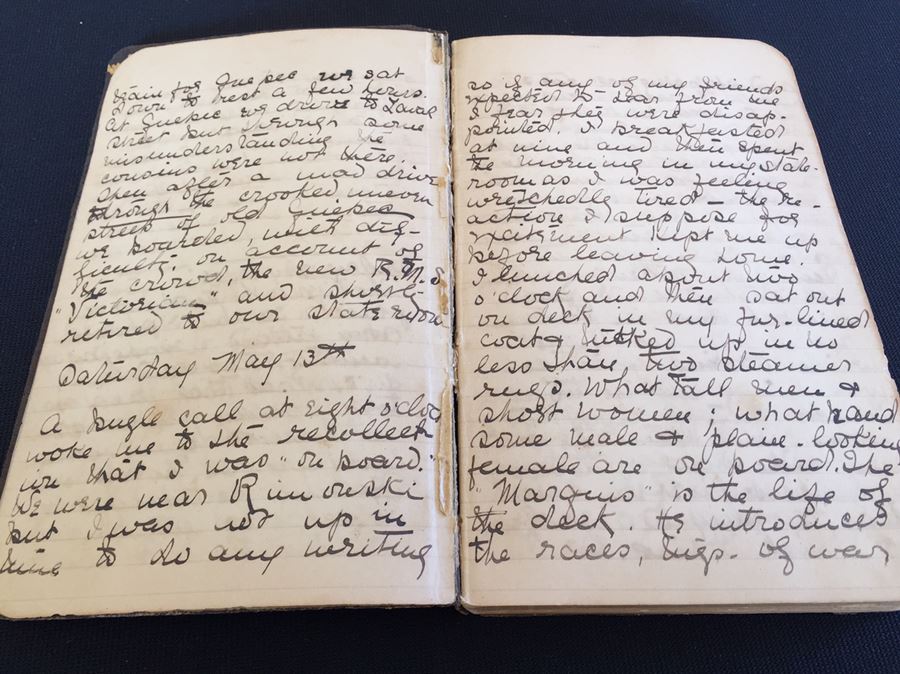 train for Quebec we sat
down to rest a few hours.
At Quebec we drove to Laval
street but through some
misunderstanding the
cousins were not there.
Then after a mad drive
through the crooked uneven
streets of old Quebec
we boarded, with dif-
ficulty on account of
the crowd, the new R.M.S
"Victorian" and shortly
retired to our stateroom
Saturday May 13th
A bugle call at eight o'cloc
woke me to the recollect
ion that I was "on board."
We were near Rimouski
but I was not up in
time to do any writing
so if any of my friends
expected to hear from me
I fear they were disap-
pointed. I breakfasted
at nine and then spent
the morning in my state-
room as I was feeling
wretchedly tired – the re-
action I suppose for
excitement kept me up
before leaving home.
I lunched about two
o'clock and then sat out
on deck in my fur-lined
coat & tucked up in no
less than two steamer
rugs. What tall men &
short women; what hand
some male & plain-looking
female are on board. The
"Marquis" is the life of
the deck. He introduces
the races, tugs-of war